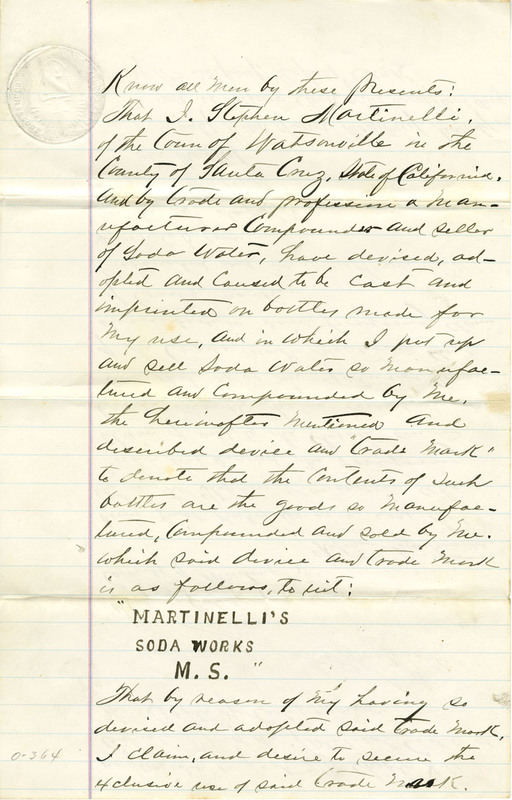 Know all Men by these Presents:
That I, Stephen Martinelli,
of the Town of Watsonville in the
County of Santa Cruz, State of California,
and by trade and profession a Man-
ufacturer Compounder and seller
of Soda Water, have devised, ad-
opted and Caused to be Cast and
imprinted on bottles made for
My use, and in which I put up
and sell Soda Water so Manufac-
tured and Compounded by Me,
the hereinafter Mentioned and
described device and "trade Mark"
to denote that the Contents of such
bottles are the goods so Manufac-
tured, Compounded and sold by Me.
which said device and trade Mark
is as follows, to wit:
"MARTINELLI'S
SODA WORKS
M. S. "
That by reason of My having so
devised and adopted said trade Mark,
I claim, and desire to secure the
exclusive use of said trade Mark.
0-364